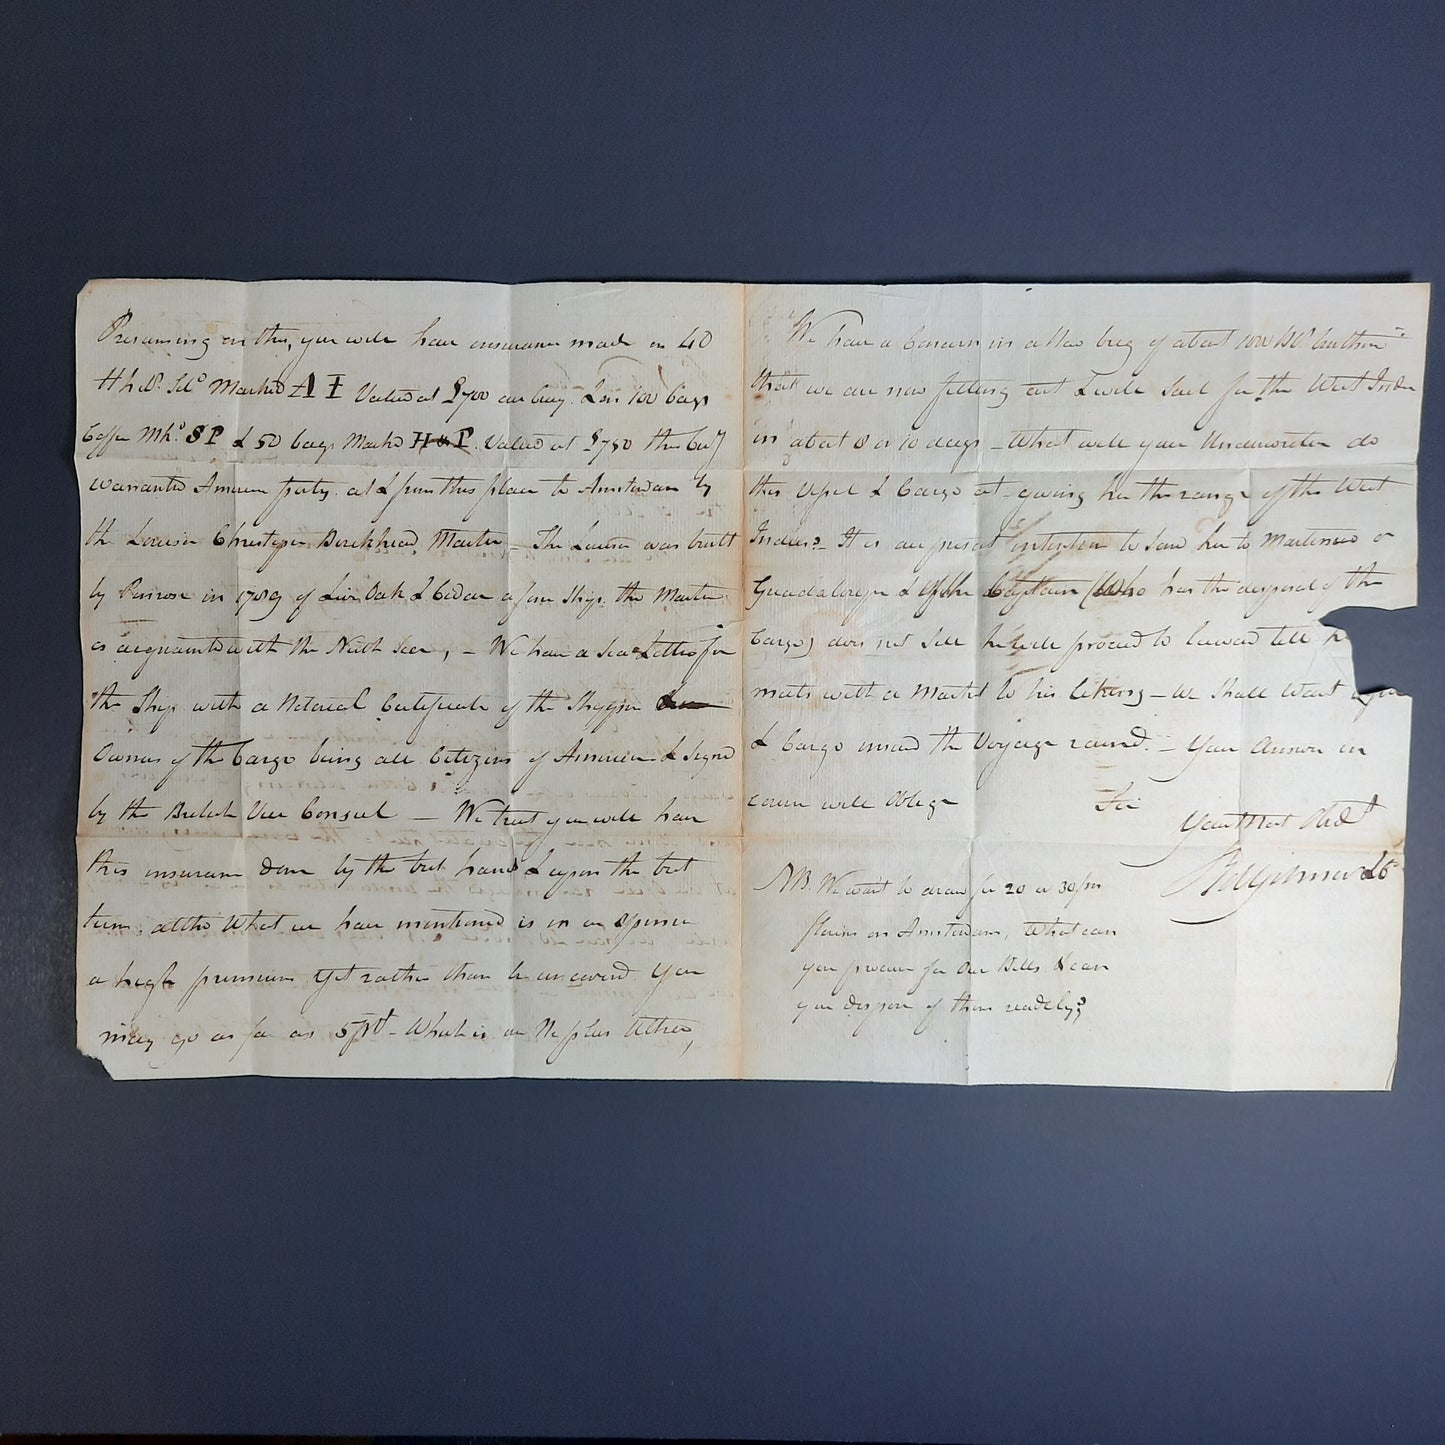 Presuming on this, you will have insurance made on 40
Hhds. Marked A I Valued at £700 our Curry. & on 100 bags
Coffee Mkd. SP & 50 bags Marked H & P. Valued at £750 this Curry
warranted American property at & from this place to Amsterdam by
the Louisa Christopher Birckhead Master — The Louisa was built
by Penrose in 1789 of Live Oak & Cedar a fine Ship. the Master
is acquainted with the North Seas, — We have a Sea Letter for
the Ship with a Notereal Certificate of the Shipper
Owners of the Cargo being all Citizens of America & Signed
by the British Vice Consul — We trust you will have
this insurance done by the best hands & upon the best
terms. altho What we have mentioned is in our Opinion
a high premium yet rather than be uncovered. You
may go as far as 5 pCt — Which is our Ne plus Ultra,
We have a Concern in a New brig of about 1000 bls burthen
that we are now fitting out & will Sail for the West Indies
in about 8 or 10 days — What will your Underwriters do
this Vessel & Cargo at giving her the range of the West
Indies? — It is our present intention to Send her to Martinico or
Guadaloupe & if the Captain (Who has the disposal of the
Cargo) does not Sell he will proceed to leeward till he
meets with a Market to his liking — we Shall Want
& Cargo insured the Voyage round. — Your Answer in
course will Oblige Sir
Your Most Obd
Rob Gilmor & Co
NB. We want to draw for 20 or 30/m
florins on Amsterdam, What can
you procure for Our Bills & can
you dispose of them readily?